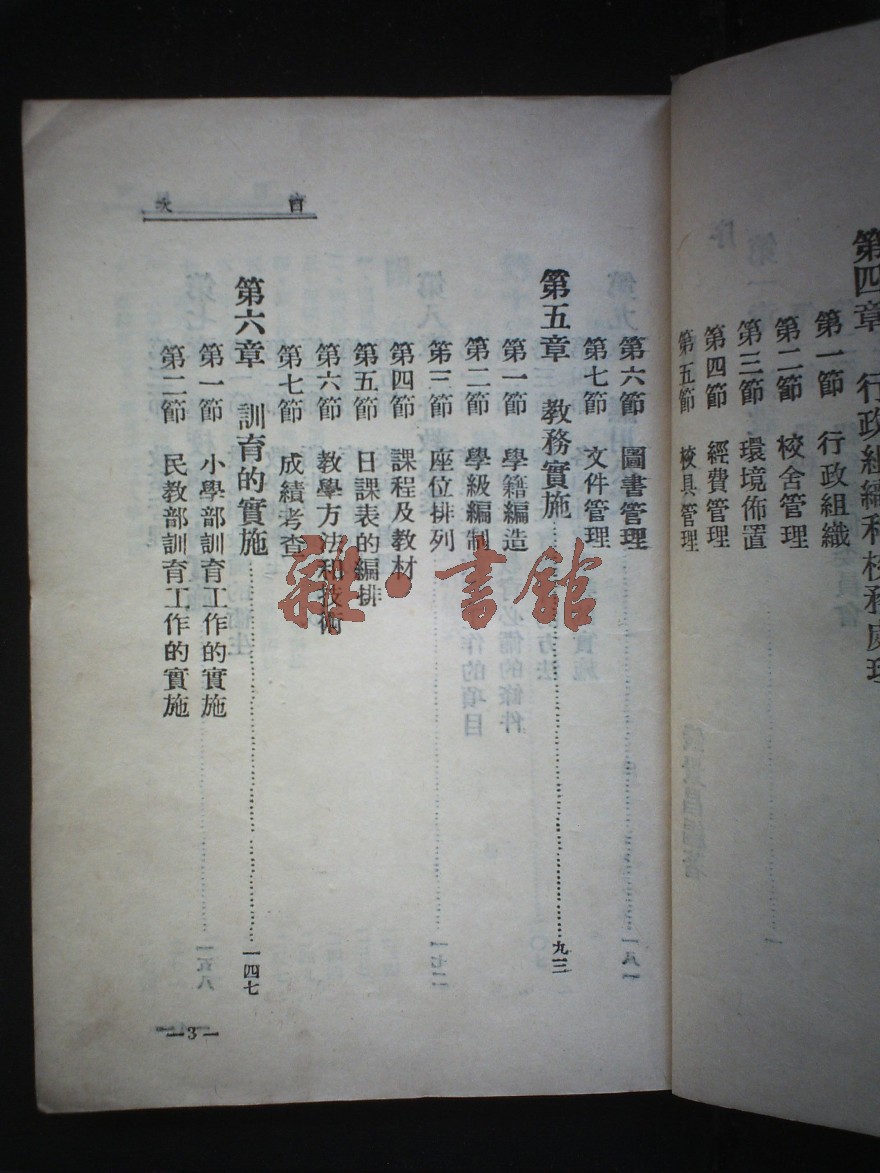 第四章 行政組織和校務處理
第一節 行政組織
第二節 校舍管理
第三節 環境佈置
第四節 經費管理
第五節 校具管理
目 次
第六節 圖書管理
第七節 文件管理
第五章 教務實施……九三
第一節 學籍編造
第二節 學級編制
第三節 座位排列
第四節 課程及教材
第五節 日課表的編排
第六節 教學方法和技術
第七節 成績考查
第六章 訓育的實施……一四七
第一節 小學部訓育工作的實施
第二節 民教部訓育工作的實施
—3—
雜·書館